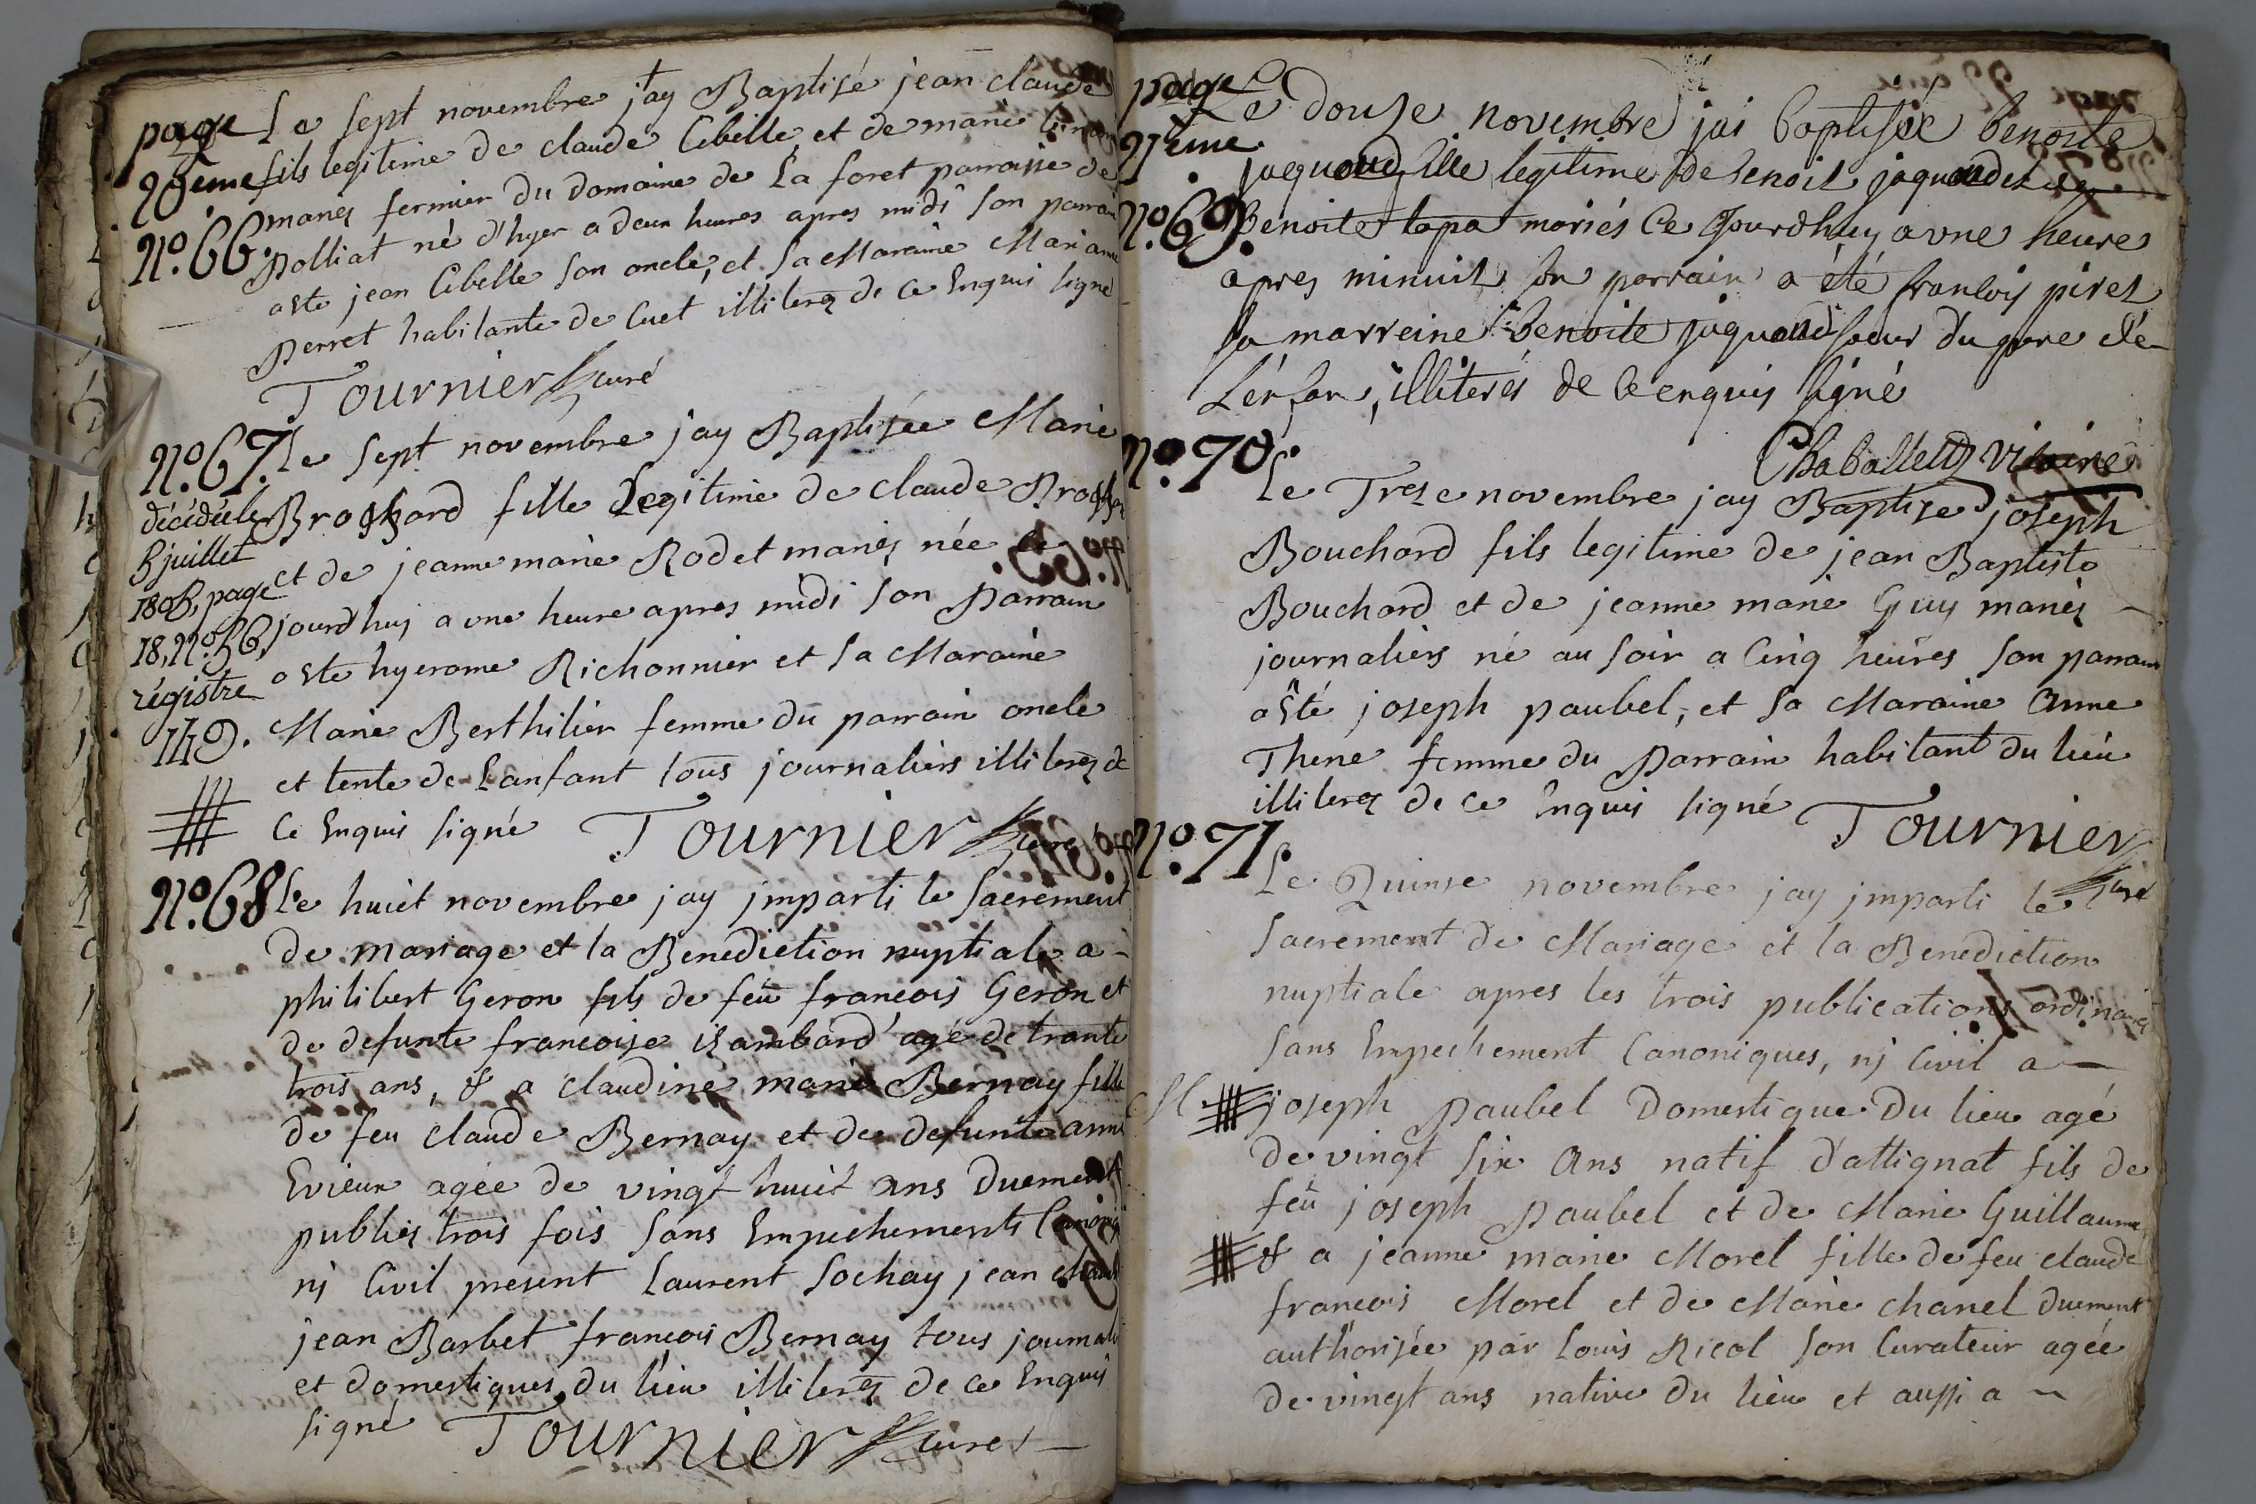 page
20ème
N.º 66.
Le sept novembre j'ay Baptisé jean claude
fils legitime de claude Cibelle et de marie
mariés fermier du domaine de La foret parroisse de
Polliat né d'hyer a deux heures apres midi son parrain
a eté jean Cibelle son oncle, et sa Maraine Marianne
Perret habitante de Cuet illiterez de ce Enquis signé
Tournier curé
N.º 67.
décédée le
5 juillet
1808, page
18, N.º 56,
régistre
149.
Le sept novembre jay Baptisée Marie
Brochard fille Legitime de claude
et de jeanne marie Rodet mariés née ce
jourd'huy a une heure apres midi son Parrain
a eté hyerome Richonnier et sa Maraine
Marie Berthilier femme du parrain oncle
et tente de L'anfant tous journaliers illiterez de
Ce Enquis signé Tournier curé
N.º 68.
Le huict novembre jay jmparti le sacrement
de mariage et la Benediction nuptiale a -
philibert Geron fils de feu francois Geron et
de defunte francoise isambard agé de trante
trois ans, & a claudine marie Bernay fille
de feu claude Bernay et de defunte anne
Evieux agée de vingt huict ans Duement
publiés trois fois sans Empechements
nj Civil present Laurent Sochay jean
jean Barbet francois Bernay tous
et domestiques du lieu illiterez de ce Enquis
signé Tournier curé
page
21ème.
N.º 69.
Le Douze novembre jai baptisée benoite
jaquond fille legitime de benoit jaquond et de
Benoite lapa mariés Ce Jourdhuy a une heures
apres minuit son parrain a été francois piret
sa marreine benoite jaquond soeur du pere de
L'enfan, illiterés de ce enquis signé
Chaballet vicaire
N.º 70.
Le Treze novembre jay Baptise joseph
Bouchard fils legitime de jean Baptiste
Bouchard et de jeanne marie Guy mariés -
journaliers né au soir a Cinq heures son parrain
a eté joseph paubel, et sa Maraine Anne
Thene femme du Parrain habitant du lieu
illiterez de ce Enquis signé Tournier
curé
N.º 71.
Le Quinse novembre jay jmparti le
sacrement de Mariage et la Benediction
nuptiale apres les trois publications ordinaires
sans Empechement Canoniques, nj Civil a -
joseph Paubel Domestique Du lieu agé
de vingt six Ans natif d'attignat fils de
feu joseph Paubel et de Marie Guillaume
& a jeanne marie Morel fille de feu claude
francois Morel et de Marie chanel duement
authorisée par Louis Nicol son Curateur agée
de vingt ans native du lieu et aussi a -